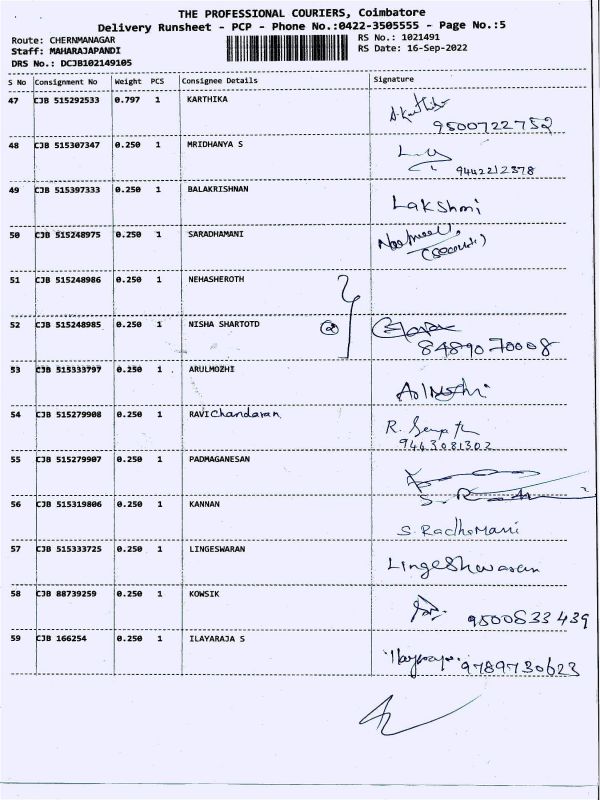 THE PROFESSIONAL COURIERS, Coimbatore
Delivery Runsheet - PCP - Phone No.:0422-3505555 - Page No.:5
Route: CHERNMANAGAR RS No.: 1021491
Staff: MAHARAJAPANDI RS Date: 16-Sep-2022
DRS No.: DCJB102149105
S No Consignment No Weight PCS Consignee Details Signature
47 CJB 515292533 0.797 1 KARTHIKA
9500722752
48 CJB 515307347 0.250 1 MRIDHANYA S
9442212378
49 CJB 515397333 0.250 1 BALAKRISHNAN
Lakshmi
50 CJB 515248975 0.250 1 SARADHAMANI
51 CJB 515248986 0.250 1 NEHASHEROTH
52 CJB 515248985 0.250 1 NISHA SHARTOTD
8489070008
53 CJB 515333797 0.250 1 ARULMOZHI
54 CJB 515279908 0.250 1 RAVI Chandaran
9463081302
55 CJB 515279907 0.250 1 PADMAGANESAN
56 CJB 515319806 0.250 1 KANNAN
S. RadhaMani
57 CJB 515333725 0.250 1 LINGESWARAN
Lingeshwaran
58 CJB 88739259 0.250 1 KOWSIK
9500833439
59 CJB 166254 0.250 1 ILAYARAJA S
9789730623